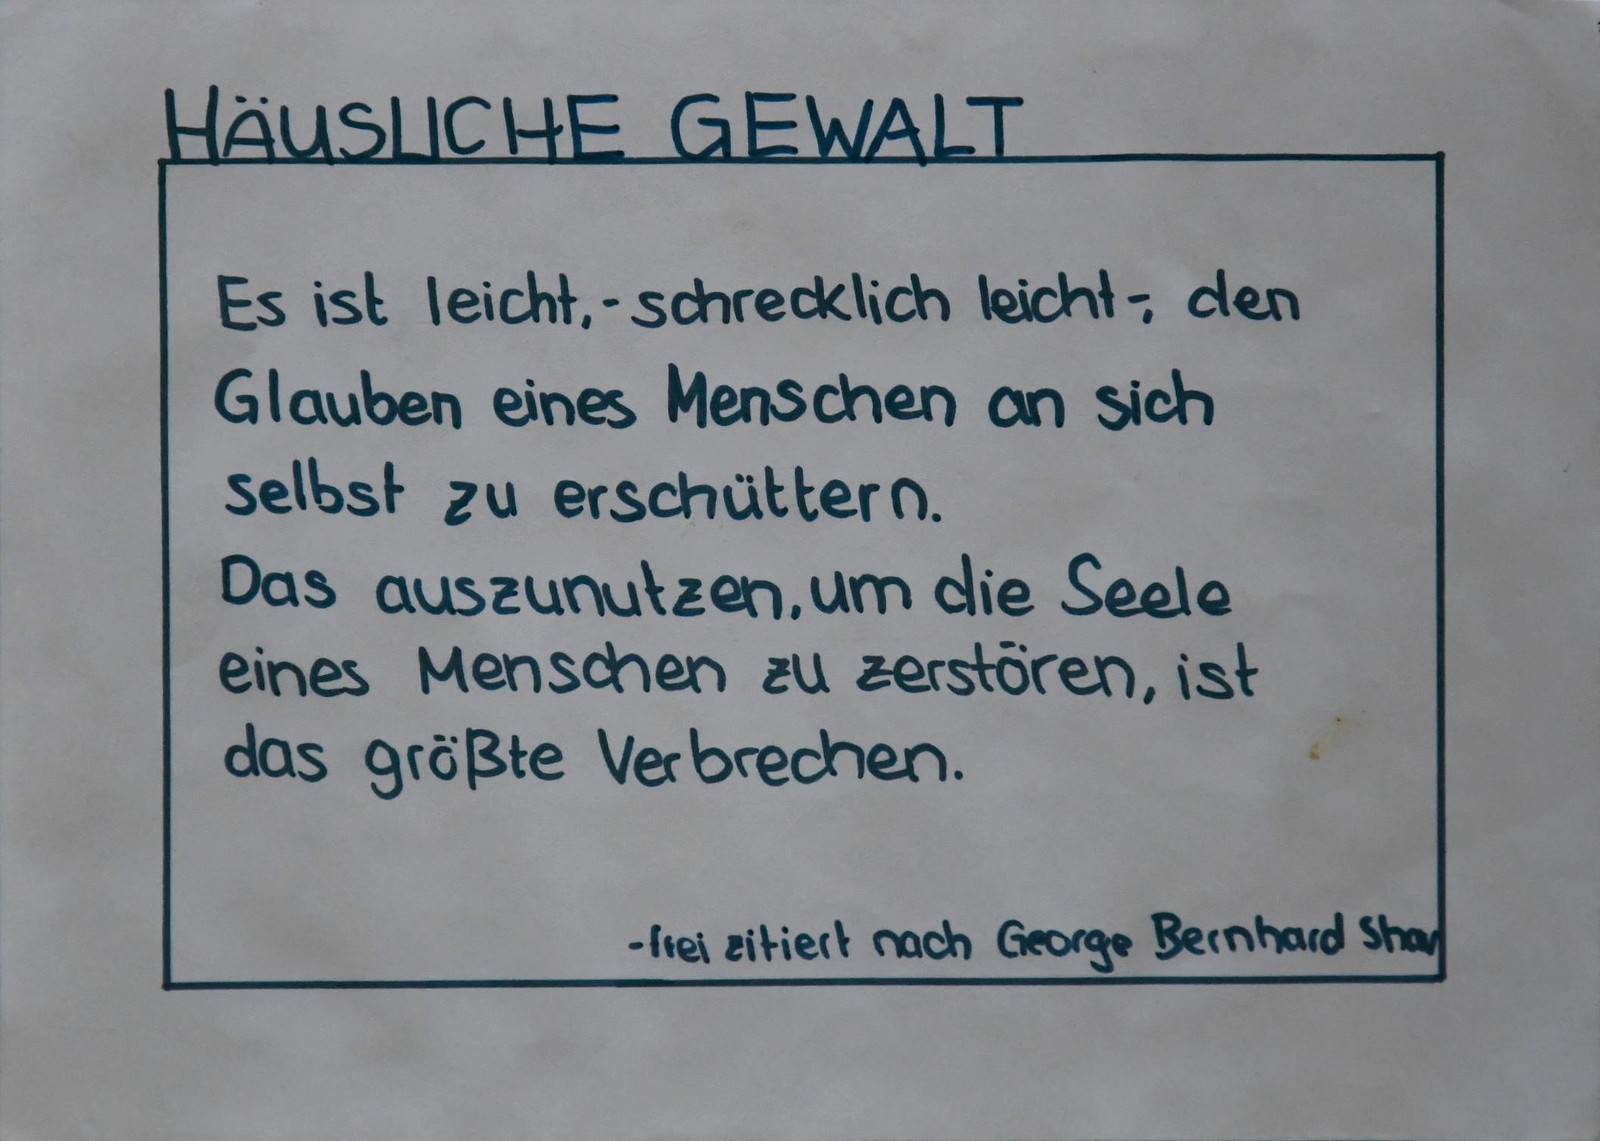 HÄUSLICHE GEWALT
Es ist leicht,-schrecklich leicht-, den
Glauben eines Menschen an sich
selbst zu erschüttern.
Das auszunutzen, um die Seele
eines Menschen zu zerstören, ist
das größte Verbrechen.
-frei zitiert nach George Bernhard Shaw